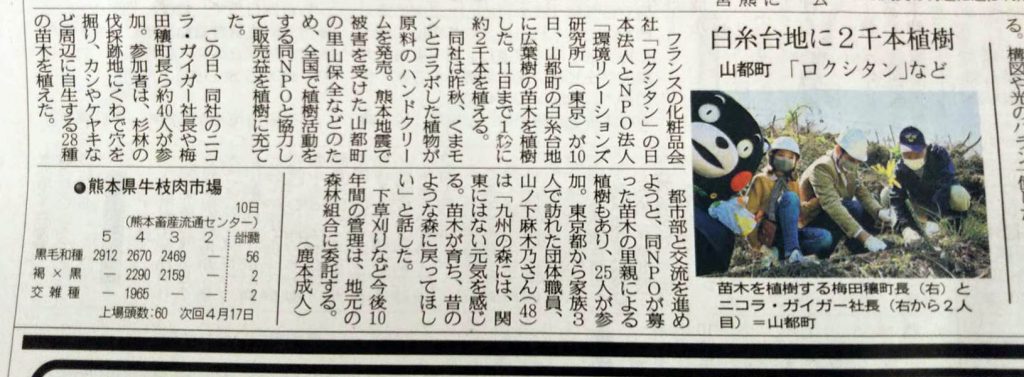 白糸台地に2千本植樹
山都町 「ロクシタン」など
苗木を植樹する梅田穰町長(右)と
ニコラ・ガイガー社長(右から2人
目)=山都町
フランスの化粧品会
社「ロクシタン」の日
本法人とNPO法人
「環境リレーションズ
研究所」(東京)が10
日、山都町の白糸台地
に広葉樹の苗木を植樹
した。11日まで1㌶に
約2千本を植える。
同社は昨秋、くまモ
ンとコラボした植物が
原料のハンドクリー
ムを発売。熊本地震で
被害を受けた山都町
の里山保全などのた
め、全国で植樹活動を
する同NPOと協力し
て販売益を植樹に充て
た。
この日、同社のニコ
ラ・ガイガー社長や梅
田穰町長ら約40人が参
加。参加者は、杉林の
伐採跡地にくわで穴を
掘り、カシやケヤキな
ど周辺に自生する28種
の苗木を植えた。
都市部と交流を進め
ようと、同NPOが募
った苗木の里親による
植樹もあり、25人が参
加。東京都から家族3
人で訪れた団体職員、
山ノ下麻木乃さん(48)
は「九州の森には、関
東にはない元気を感じ
る。苗木が育ち、昔の
ような森に戻ってほし
い」と話した。
下草刈りなど今後10
年間の管理は、地元の
森林組合に委託する。
(鹿本成人)
●熊本県牛枝肉市場
10日
(熊本畜産流通センター)
5 4 3 2 合計頭数
黒毛和種 2912 2670 2469 — 56
褐×黒 — 2290 2159 — 2
交雑種 — 1965 — — 2
上場頭数:60 次回4月17日